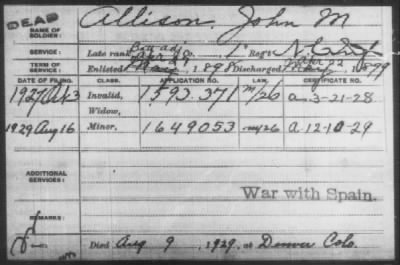 DEAD
NAME OF SOLDIER: Allison, John M
SERVICE: Late rank Batt adj Co. 1" Reg't N.
TERM OF SERVICE: Enlisted 1898 Discharged 22 1899
DATE OF FILING. CLASS. APPLICATION NO. LAW. CERTIFICATE NO.
1927 Oct 3 Invalid, 1593.371 m/26 a-3-21-28
Widow,
1929 Aug 16 Minor, 1649053 m/26 a.12-10-29
ADDITIONAL SERVICES:
War with Spain.
REMARKS:
Died Aug 9, 1929, at Denver Colo.